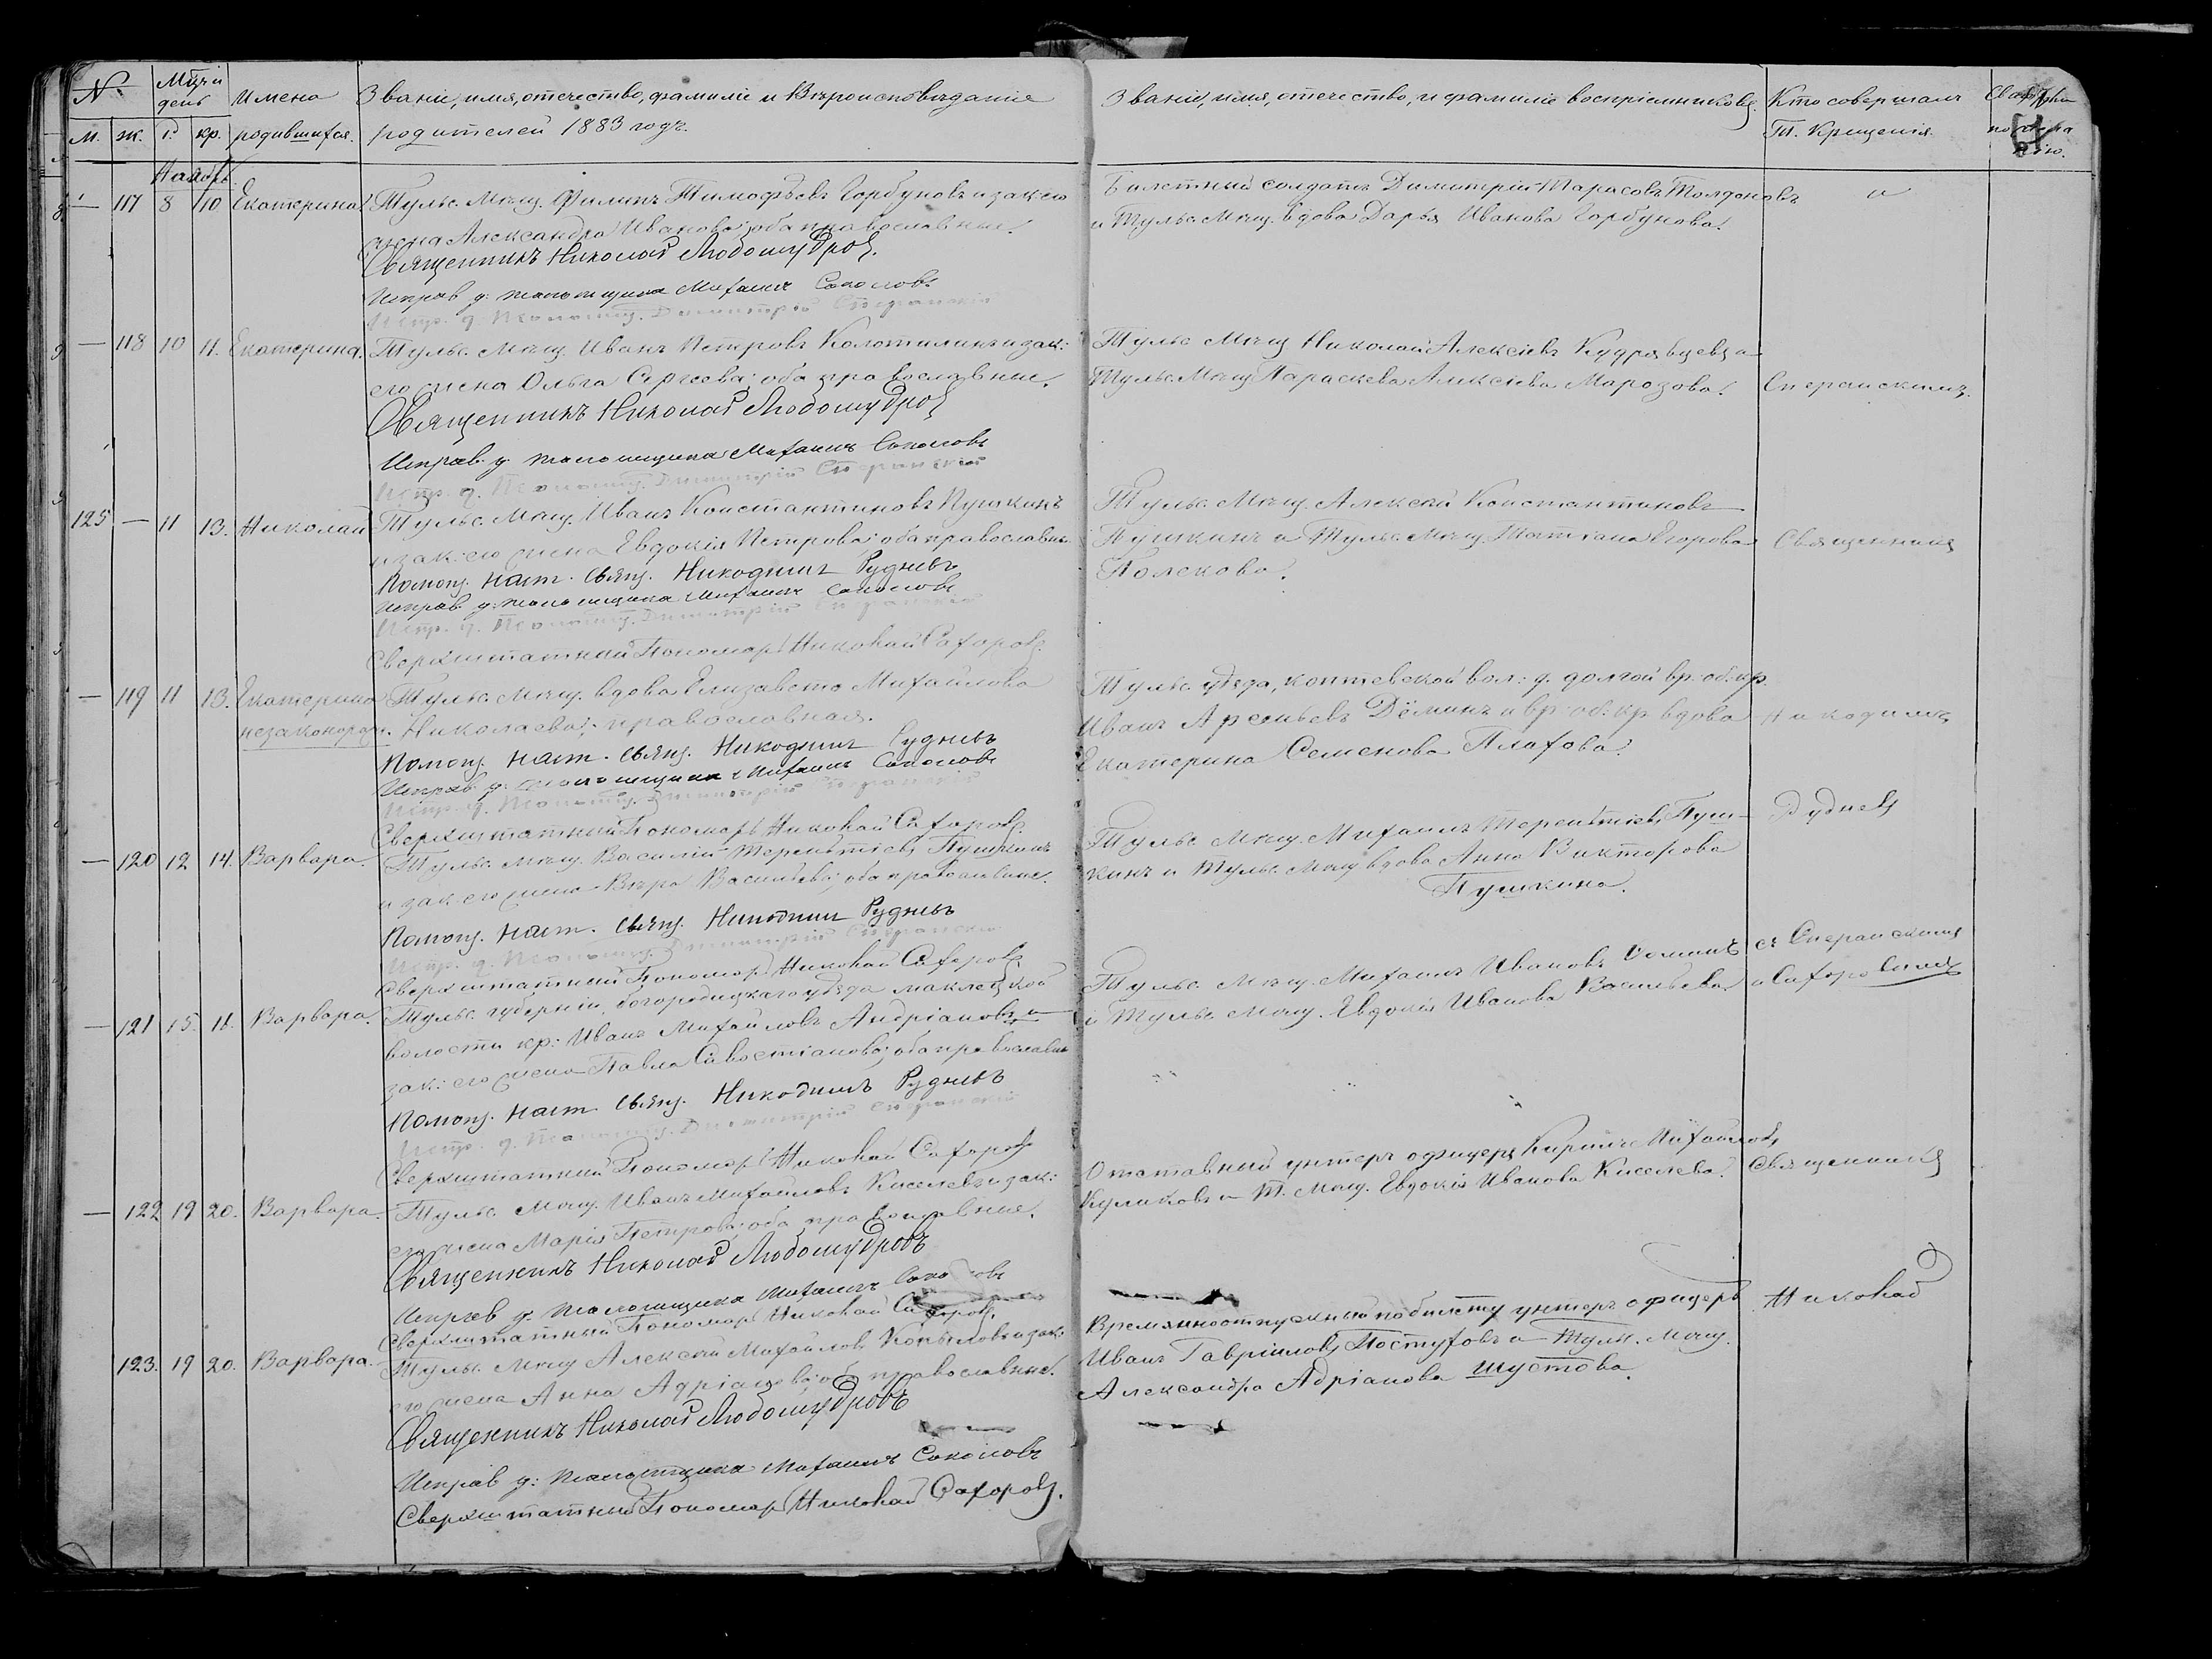 № Мѣц и день Имена Званіе, имя, отчество, фамиліе и Вѣроисповѣданіе
м. ж. р. кр. родившихся. родителей 1883 годъ.
Званіе, имя, отчество, и фамиліе воспріемниковъ. Кто совершалъ
Т. Крещенія.
Ноябрь
— 117 8 10 Екатерина Тульс. Мѣщ. Филипъ Тимофѣевъ Горбуновъ и зак: его
жена Александра Иванова; оба православные.
Священникъ Николай Любомудров.
Исправ. д: псаломщика Михаилъ Соколовъ
Испр. д. Псаломщ. Димитрій Сперанскій
Билетный солдатъ Димитрій Тарасовъ Толдоновъ
и Тульс. Мѣщ. вдова Дарья Иванова Горбунова.
и
— 118 10 11. Екатерина. Тульс. Мѣщ. Иванъ Петровъ Колотилинъ и зак:
его жена Ольга Сергеева; оба православные.
Священникъ Николай Любомудров
Исправ. д псаломщика Михаилъ Соколовъ
Испр. д. Псаломщ. Димитрій Сперанскій
Тульс Мѣщ Николай Алексіевъ Кудрявцевъ и
Тульс. Мѣщ Параскева Алексіева Марозова.
Сперанскимъ.
125 — 11 13. Николай Тульс. Мѣщ. Иванъ Константиновъ Пушкинъ
и зак: его жена Евдокія Петрова; оба православны
Помощ. Наст. Свящ. Никодимъ Рудневъ
Исправ. д. псаломщика Михаилъ Соколовъ
Испр. д. Псаломщ. Димитрій Сперанскій
Сверхштатный Пономарь Николай Сахаров.
Тульс. Мѣщ. Алексѣй Константиновъ
Пушкинъ и Тульс. Мѣщ. Татіана Егорова
Полекова.
Священник
— 119 11 13. Екатерина Тульс. Мѣщ. вдова Елизавета Михайлова
незаконорож. Николаева; православная.
Помощ. Наст. Свящ. Никодимъ Рудневъ
Исправ. д: псаломщика Михаилъ Соколовъ
Испр. д. Псаломщ. Димитрій Сперанскій
Сверхштатный Пономарь Николай Сахаров.
Тульс. уѣзда, коптевской вол: д. долгой вр. об. кр.
Иванъ Арсеньевъ Дёминъ и вр: об. кр. вдова
Екатерина Семенова Плахова.
Никодимъ
— 120 12 14. Варвара. Тульс. Мѣщ. Василій Терентіевъ Пушкинъ
и зак: его жена Вѣра Васильева; оба православные.
Помощ. Наст. Свящ. Никодимъ Рудневъ
Испр. д. Псаломщ. Димитрій Сперанскій
Сверхштатный Пономарь Николай Сахаров.
Тульс. Мѣщ. Михаилъ Терентіевъ Пуш-
кинъ и Тульс. Мѣщ вдова Анна Викторова
Пушкина.
Рудневъ
— 121 15. 18. Варвара. Тульс. губерніи, богородицкаго уѣзда маклецкой
волости кр: Иванъ Михайловъ Андріановъ и
зак: его жена Павла Савостіанова; оба православны
Помощ. Наст. Свящ. Никодимъ Рудневъ
Испр. д. Псаломщ. Димитрій Сперанскій
Сверхштатный Пономарь Николай Сахаров
Тульс. Мѣщ. Михаилъ Ивановъ Фоминъ
и Тульс. Мѣщ. Евдокія Иванова Васильева.
съ Сперанскимъ
и Сахаровымъ
— 122 19 20. Варвара. Тульс. Мѣщ. Иванъ Михайловъ Киселевъ и зак:
его жена Марія Петрова; оба православные.
Священникъ Николай Любомудровъ
Исправ. д. псаломщика Михаилъ Соколовъ
Сверхштатный Пономарь Николай Сахаров.
Отставный унтеръ офицеръ Кирилъ Михайловъ
Куликовъ и Т. Мѣщ. Евдокія Иванова Киселева.
Священник
123. 19 20. Варвара. Тульс. Мѣщ Алексѣй Михайловъ Копыловъ и зак:
его жена Анна Адріанова; оба православные.
Священникъ Николай Любомудровъ
Исправ. д: псаломщика Михаилъ Соколовъ
Сверхштатный Пономарь Николай Сахаров.
Временноотпускный по билету унтеръ офицеръ
Иванъ Гавріиловъ Постуховъ и Тульс. Мѣщ.
Александра Адріанова Шустова.
Николай